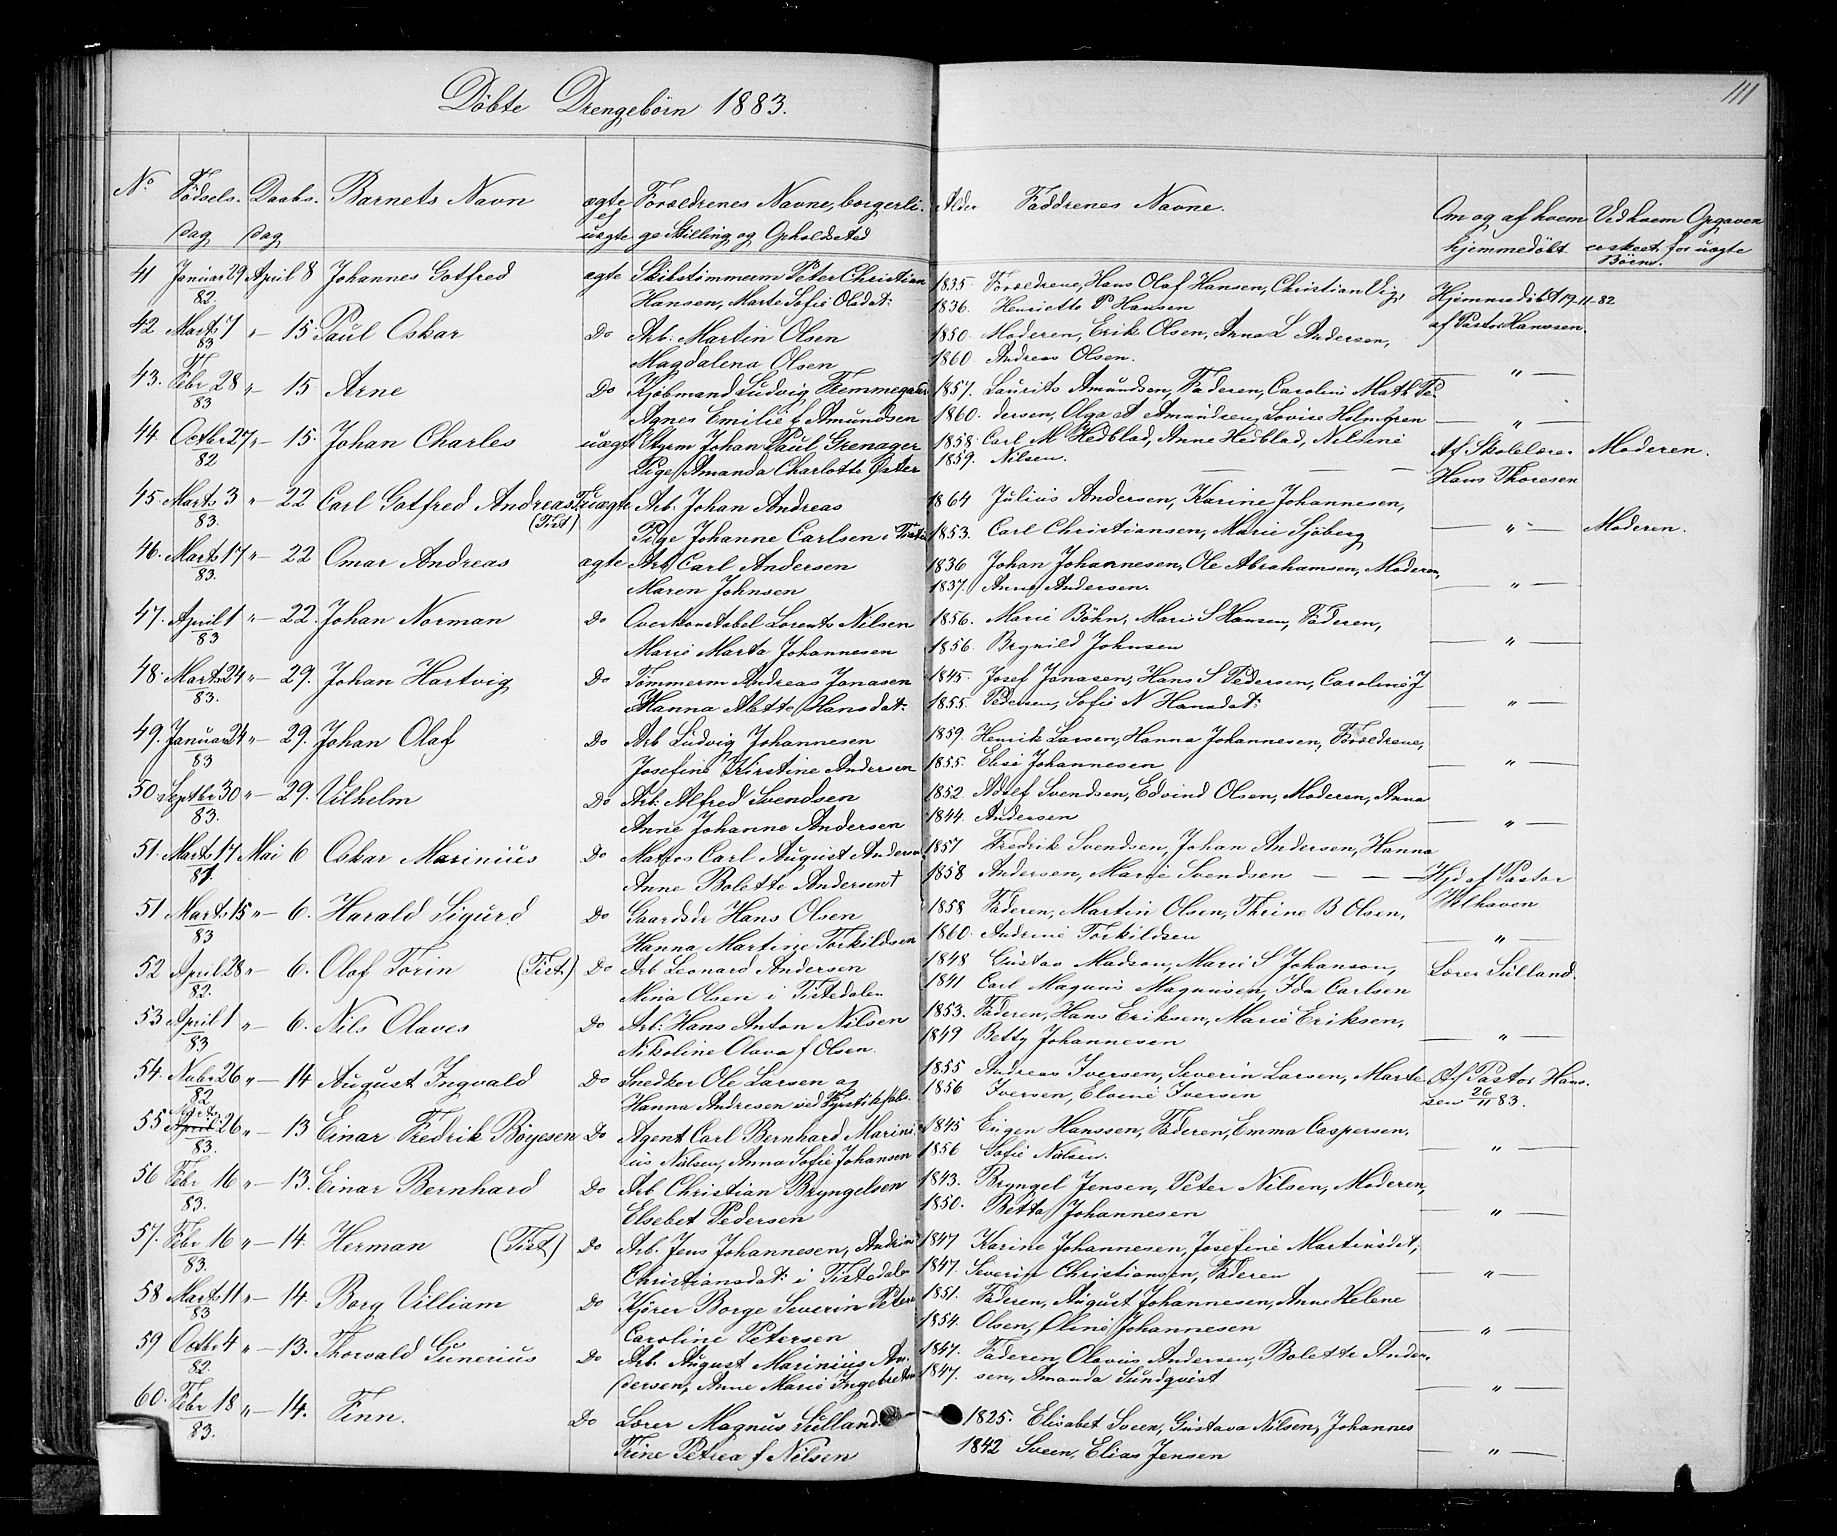 111
Döbte Drengebörn 1883.
No Födsels- Daabs- Barnets Navn ægte Forældrenes Navne, borgerli- Alder Faddrenes Navne. Om og af hvem Ved hvem Opgaven
dag dag el uægte ge Stilling og Opholdssted hjemmedöbt er skeet for uægte
Börn.
41 Januar 29 April 8 Johannes Gotfred ægte Skibstimmerm Peter Christian 1835. Forældrene, Hans Olaf Hansen, Christian Hjemmedöbt 19-11-82
82 Hansen, Marte Sofie Olsdat: 1836. Henriette P Hansen af Pastor Hanssen.
42 Marts 7 " - 15 Paul Oskar Do Arb. Martin Olsen 1850. Moderen, Erik Olsen, Anna L Andersen,
83 Magdalena Olsen 1860. Andreas Olsen. — " —
43. Febr 28 " - 15 Arne Do Kjöbmand Ludvig Flemmegaar 1857. Laurits Amundsen, Faderen, Caroline Math Pe-
83 Agnes Emilie f Amundsen 1860. dersen, Olga A Amundsen, Lovise Holmgren — " —
44. Octbr 27 " - 15. Johan Charles uægt Styrm Johan Paul Grenager 1858. Carl M Hedblad, Anne Hedblad, Nilsine Af Skolelærer Moderen.
82 Pige Amanda Charlotte Öster 1859. Nilsen. — — — Hans Thoresen
45 Marts 3 " - 22 Carl Gotfred Andreas uægte Arb. Johan Andreas 1864 Julius Andersen, Karine Johannesen,
83. (Tist) Pige Johanne Carlsen i Tist 1853. Carl Christiansen, Marie Sjöberg — " — Moderen.
46. Marts 17 " - 22 Omar Andreas ægte Arb Carl Andersen 1836 Johan Johannesen, Ole Abrahamsen, Moderen,
83. Maren Johnsen 1837. Anna Andersen. — " —
47. April 1 " - 22. Johan Norman Do Overkonstabel Lorents Nilsen 1856. Marie Böhn, Marie S Hansen, Faderen,
83 Marie Marta Johannesen 1856. Brynild Johnsen — " —
48. Marts 24 " - 29. Johan Hartvig Do Tömmerm Andreas Jonasen 1845. Josef Jonasen, Hans S Pedersen, Caroline J
83. Hanna Alette Hansdat: 1855. Pedersen, Sofie N Hansdat: — " —
49. Januar 24 " - 29. Johan Olaf Do Arb Ludvig Johannesen 1859. Henrik Larsen, Hanna Johannesen, Forældrene,
83 Josefine Kirstine Andersen 1855. Elise Johannesen — " —
50. Septbr 30 " - 29. Vilhelm Do Arb. Alfred Svendsen 1852. Adolf Svendsen, Edvind Olsen, Moderen, Anna
83. Anne Johanne Andersen 1844. Andersen — " —
51. Marts 17 Mai 6 Oskar Marinius Do Matros Carl August Andersn 1857 Fredrik Svendsen, Johan Andersen, Hanna
81 Anne Bolette Andersen† 1858 Andersen, Marie Svendsen — — — Hjd af Pastor
51 Marts 15 " - 6. Harald Sigurd Do Gaardbr Hans Olsen 1858 Faderen, Martin Olsen, Thrine B Olsen, Welhaven
83 Hanna Martine Torkildsen 1860. Andrine Torkildsen — " —
52 April 28 " - 6. Olaf Torin (Tist.) Do Arb Leonard Andersen 1848 Gustav Madson, Marie S Johanson, Lærer Sulland.
82. Mina Olsen i Tistedalen 1841 Carl Magnus Magnusen, Ida Carlsen
53 April 1 " - 6. Nils Olaves Do Arb. Hans Anton Nilsen 1853. Faderen, Hans Eriksen, Marie Eriksen,
83 Nikoline Olava f Olsen. 1849 Betty Johannesen — " —
54. Nobr 26 " - 14 August Ingvald Do Snedker Ole Larsen og 1855 Andreas Iversen, Severin Larsen, Marte Af Pastor Hans-
82 Hanna Andresen ved Fyrstikfab. 1856 Iversen, Elvine Iversen sen 26/11 83.
Marts
55 April 26 " - 13 Einar Fredrik Böyesen Do Agent Carl Bernhard Marini- 1845 Eugen Hanssen, Faderen, Emma Caspersen,
83. us Nielsen, Anna Sofie Johansen 1856 Sofie Nielsen. — " —
56 Febr 16 " - 13. Einar Bernhard Do Arb Christian Bryngelsen 1843. Bryngel Jensen, Peter Nilsen, Moderen,
83. Elsebet Pedersen 1850. Betta Johannesen — " —
57. Febr 16 " - 14. Herman (Tist) Do Arb. Jens Johannesen, Andrine 1847 Karine Johannesen, Josefine Martinsdat,
83. Christiansdat: i Tistedalen 1847. Severin Christiansen, Faderen — " —
58 Marts 11 " - 14. Borg Villiam Do Kjörer Borge Severin Peters 1851. Faderen, August Johannesen, Anne Helene
83 Caroline Petersen 1854. Olsen, Oline Johannesen — " —
59 Octbr 4 " - 13. Thorvald Gunerius Do Arb. August Marinius An- 1847. Faderen, Olavus Andersen, Bolette Ander-
82 dersen, Anne Marie Ingebretsen 1847. sen, Amanda Sundqvist — " —
60. Febr 18 " - 14. Finn. Do Lærer Magnus Sulland. 1825. Elisabet Sveen, Gustava Nilsen, Johannes
83. Trine Petrea f Nilsen 1842 Sveen, Elias Jensen — " —